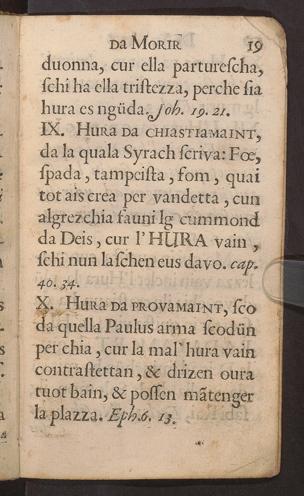 DA MORIR 19
duonna, cur ella parturescha,
schi ha ella tristezza, perche sia
hura es ngüda. Joh. 19. 21.
IX. HURA DA CHIASTIAMAINT,
da la quala Syrach scriva: Fœ,
spada, tampeista, fom, quai
tot ais crea per vandetta, cun
algrezchia fauni lg cummond
da Deis, cur l'HURA vain,
schi nun laschen eus davo. cap.
40. 34.
X. HURA DA PROVAMAINT, sco
da quella Paulus arma scodün
per chia, cur la mal' hura vain
contrastettan, & drizen oura
tuot bain, & possen mãtenger
la plazza. Eph. 6. 13.